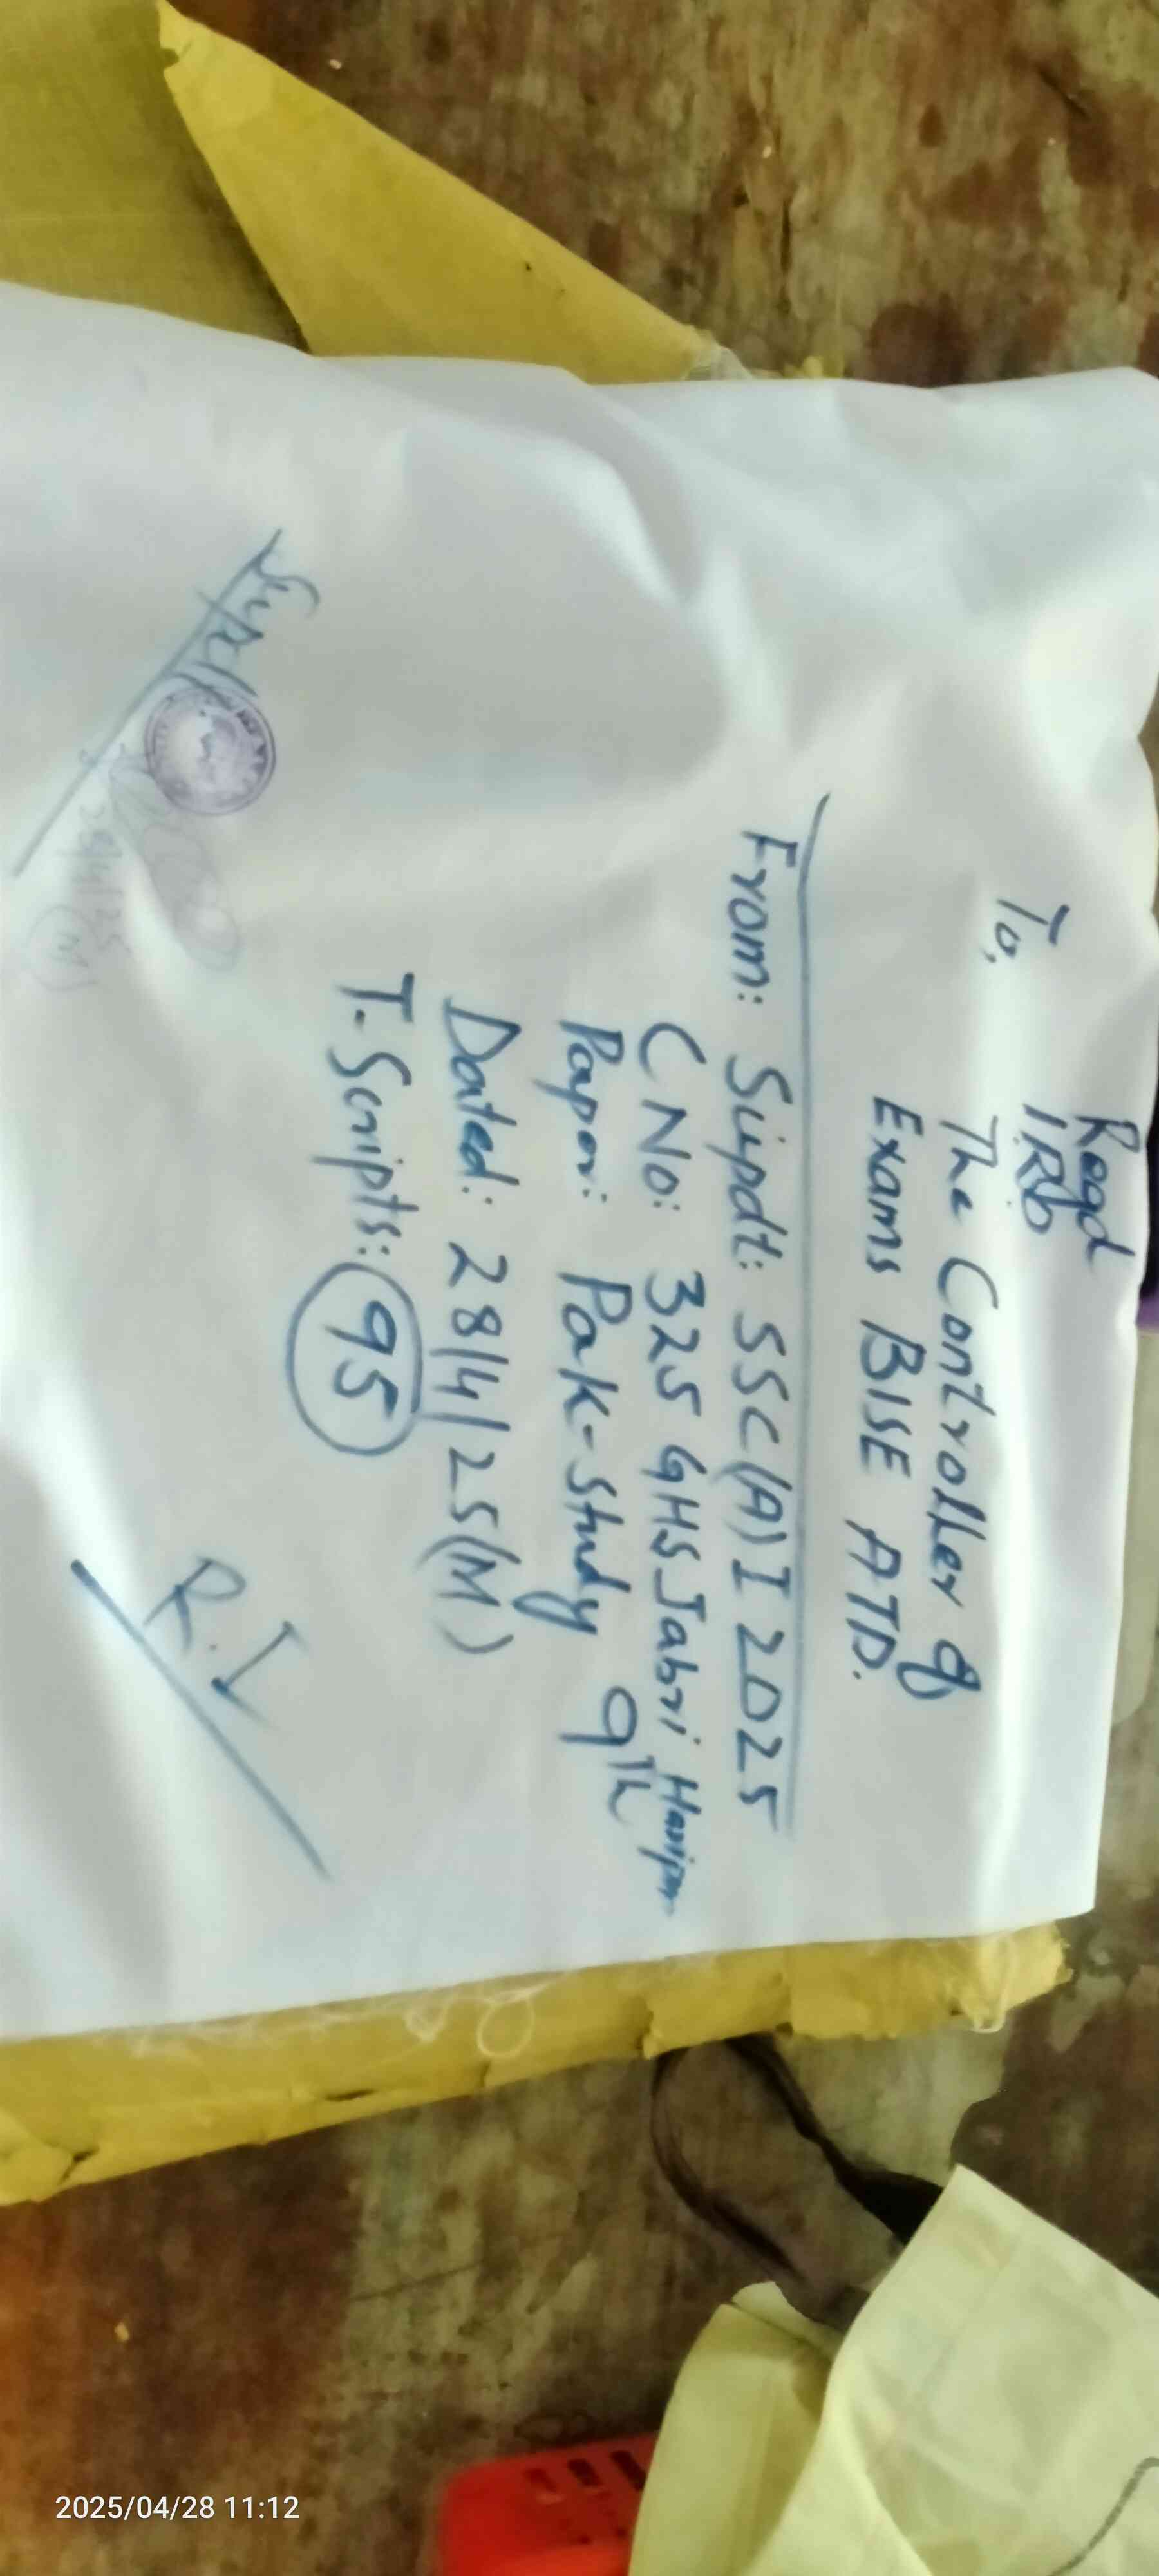 Regd
To,
The Controller of
Exams BISE ATD.
From: Supdt: SSC(A)I 2025
C No: 325 GHS Jabri Haripur
Paper: Pak-Study 9th
Dated: 28/4/25(M)
T-Scripts: 95
R.I
Supdt
2025/04/28 11:12